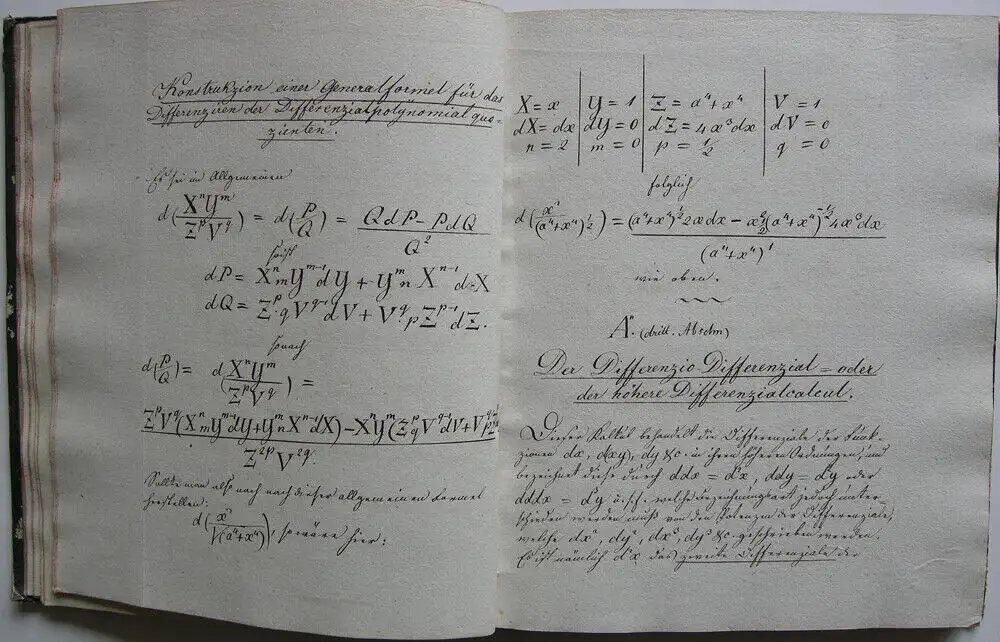 Konstrukzion einer Generalformel für das
Differenziren der Differenzialpolynomial quo-
zienten.
Es sei im Allgemeinen
d(XⁿYᵐ/ZᵖV^q) = d(P/Q) = (QdP − PdQ)/Q²
heißt
dP = XⁿmYᵐ⁻¹dY + YᵐnXⁿ⁻¹dX
dQ = Zᵖ.qV^(q-1)dV + V^q.pZᵖ⁻¹dZ.
sonach
d(P/Q) = d(XⁿYᵐ/ZᵖV^q) =
ZᵖV^q(XⁿmYᵐ⁻¹dY + YᵐnXⁿ⁻¹dX) − XⁿYᵐ(ZᵖqV^(q-1)dV + V^qpZᵖ⁻¹
Z²ᵖV^2q.
Sollte man also nach dieser allgemeinen Formel
herstellen:
d(x²/√(a⁴+x⁴)), so wäre hier:
X = x | Y = 1 | Z = a⁴+x⁴ | V = 1
dX = dx | dY = 0 | dZ = 4x³dx | dV = 0
n = 2 | m = 0 | p = ½ | q = 0
folglich
d(x²/(a⁴+x⁴)^½) = (a⁴+x⁴)^½ 2xdx − x²½(a⁴+x⁴)^-½ 4x³dx
(a⁴+x⁴)¹
wie oben.
A. (dritt. Abschn)
Der Differenzio-Differenzial = oder
der höhere Differenzialcalcul.
Dieser Kalkul behandelt die Differenziale der Funk-
zionen dx, d(xy), dy &c. in ihren höheren Ordnungen, und
bezeichnet diese durch ddx = d²x, ddy = d²y oder
dddx = d³y u.s.f. welche Bezeichnungsart jedoch unter-
schieden werden muß von den Potenzen der Differenziale,
welche dx², dy², dx³, dy³ &c. geschrieben werden.
Es ist nämlich d²x das zweite Differenziale der